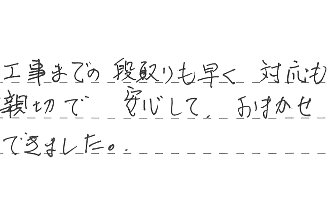 工事までの段取りも早く 対応も
親切で 安心して、おまかせ
できました。